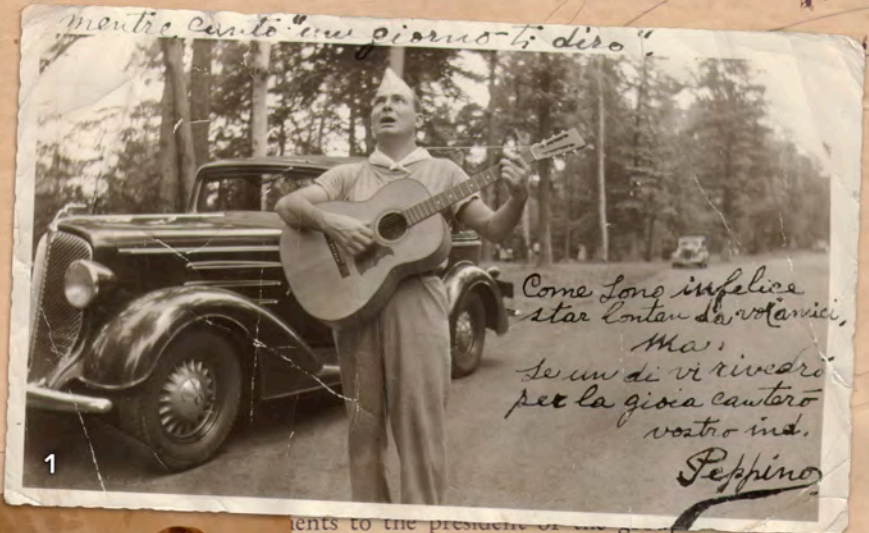 mentre canto "un giorno ti diro".
Come Sono infelice
star lontan da voi amici,
Ma.
Se un di vi rivedró
per la gioia canteró
vostro ind.
Peppino
1
ents to the president of the